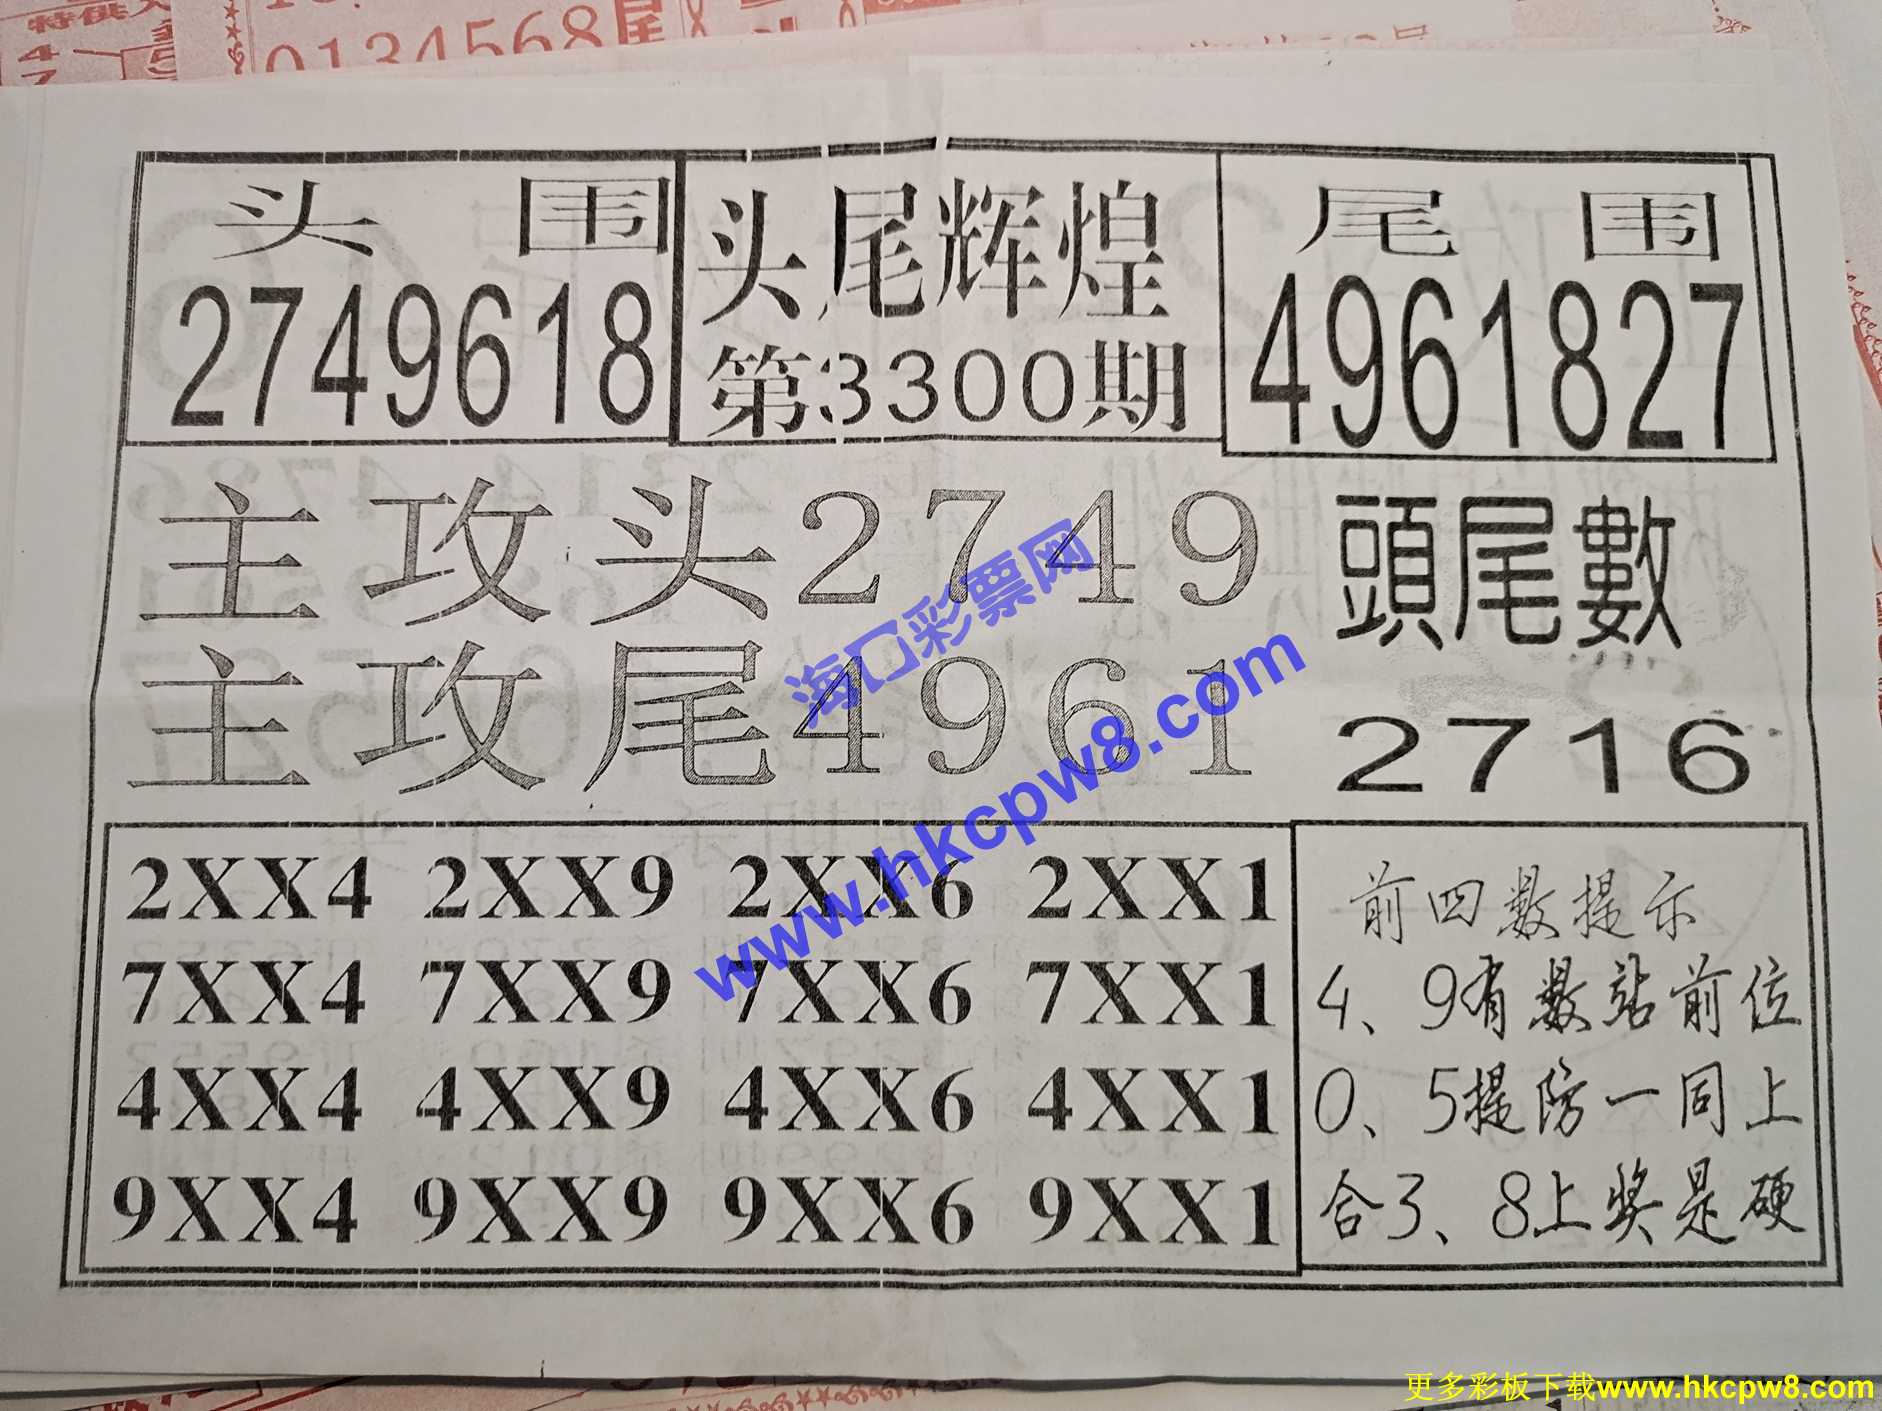 特供
0134568尾
头围
2749618
头尾辉煌
第3300期
尾围
4961827
主攻头2749
主攻尾4961
頭尾數
2716
海口彩票网
www.hkcpw8.com
2XX4 2XX9 2XX6 2XX1
7XX4 7XX9 7XX6 7XX1
4XX4 4XX9 4XX6 4XX1
9XX4 9XX9 9XX6 9XX1
前四数提示
4、9有数站前位
0、5提防一同上
合3、8上奖是硬
更多彩板下载www.hkcpw8.com